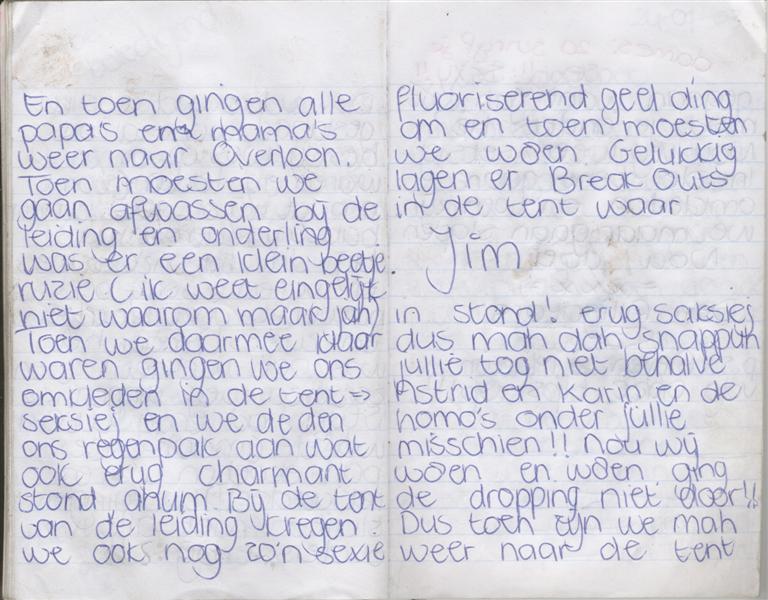 En toen gingen alle
papa's en mama's
weer naar Overloon.
Toen moesten we
gaan afwassen bij de
leiding en onderling
was er een klein beetje
ruzie (ik weet eingelijk
niet waarom maar jah)
Toen we daarmee klaar
waren gingen we ons
omkleden in de tent =>
seksiej en we deden
ons regenpak aan wat
ook erug charmant
stond ahum. Bij de tent
van de leiding kregen
we ook nog zo'n sexie
fluoriserend geel ding
om en toen moesten
we woen Gelukkig
lagen er Break Outs
in de tent waar
Jim
in stond! erug saksiej
dus mah dah snappuh
jullie tog niet behalve
Astrid en Karin en de
homo's onder jullie
misschien!! Nou wij
woen en woen ging
de dropping niet door!!
Dus toen zijn we mah
weer naar de tent